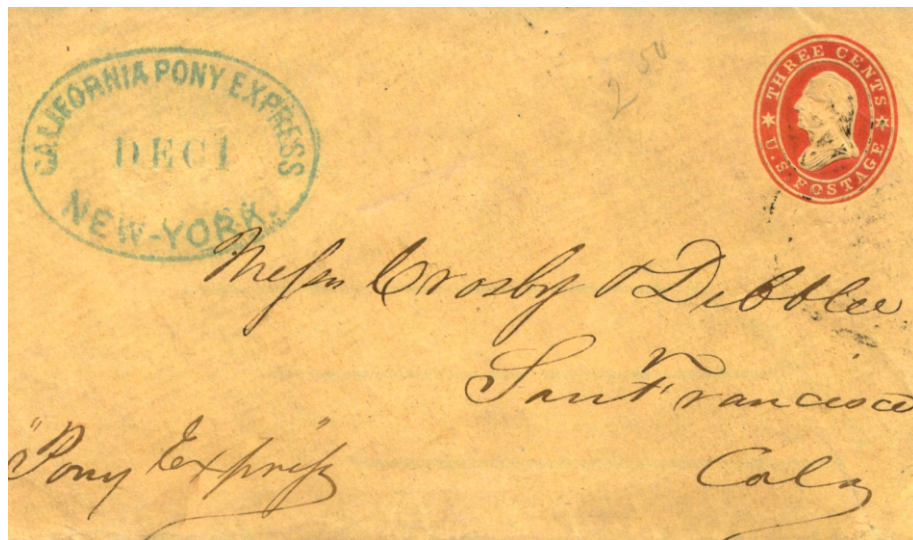 CALIFORNIA PONY EXPRESS
DEC 1
NEW-YORK.
2 50
THREE CENTS
U.S. POSTAGE
Messrs Crosby & Dibblee
San Francisco
"Pony Express"
Cala